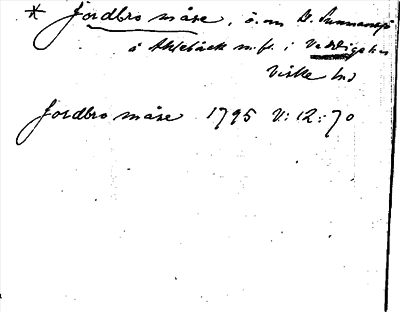 * Jordbro måse, ö. om St. Sunnansjö
å Ahlebäck m.fl. i Veddige sn
Viske hd
Jordbro måse 1795 V:12:70